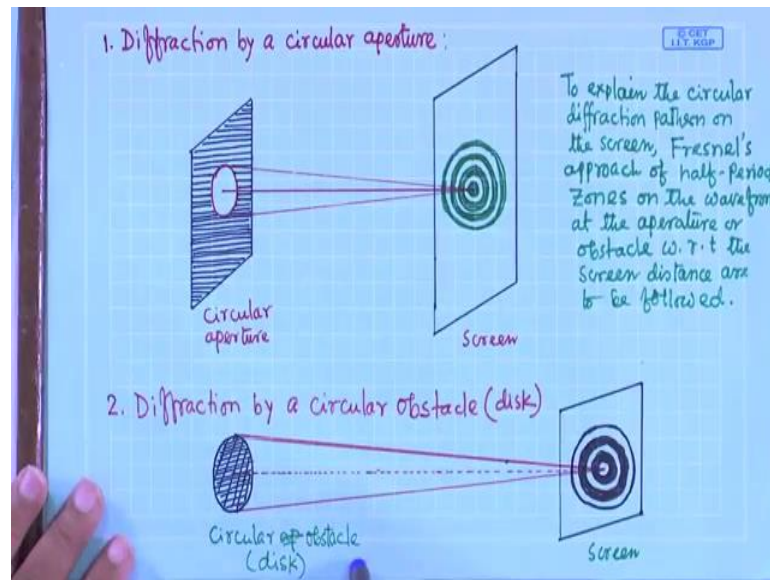 1. Diffraction by a circular aperture:
© CET
I.I.T. KGP
To explain the circular
diffraction pattern on
the screen, Fresnel's
approach of half-period
zones on the wavefron
at the aperature or
obstacle w.r.t the
screen distance are
to be followed.
circular
aperture
screen
2. Diffraction by a circular obstacle (disk)
Circular obstacle
(disk)
screen